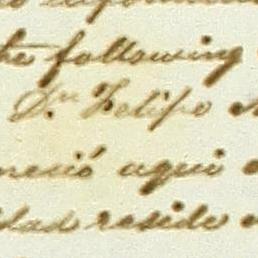 the following
Dn Felipo
neció aqui
dad reside